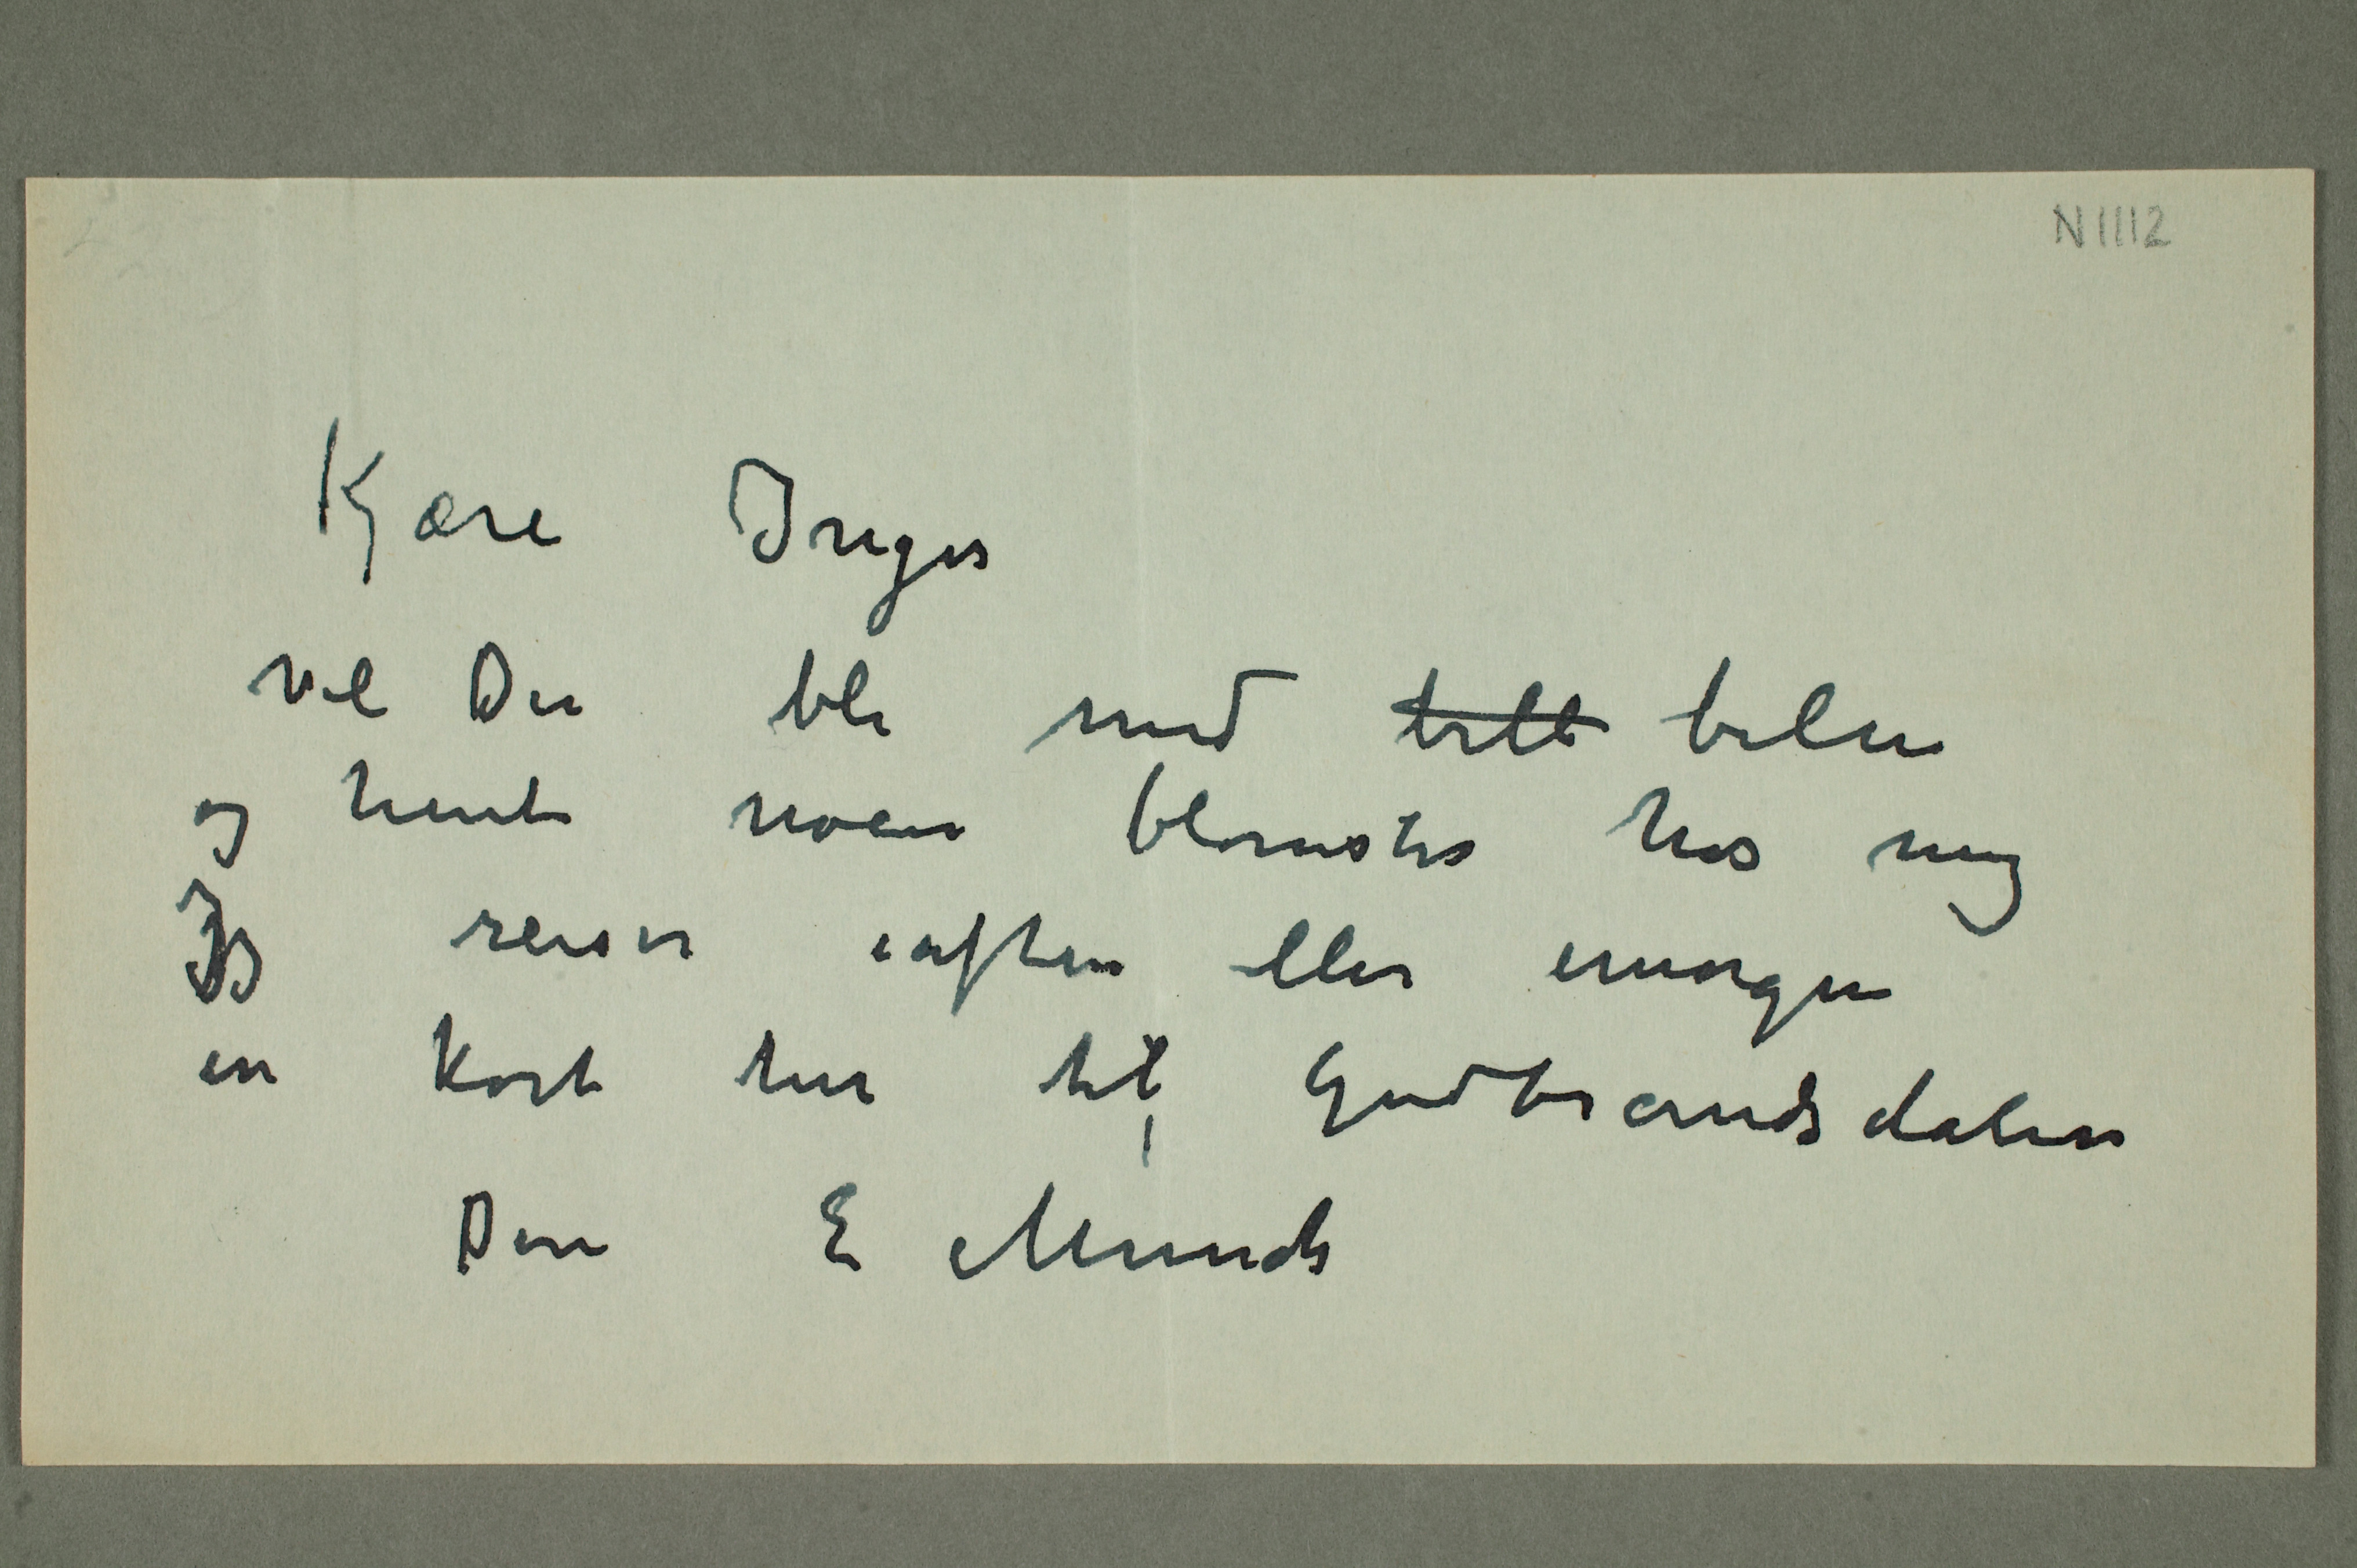 N 1112
Kjære Inger
vil Du bli med ~~bill~~ bilen
og hente noen blomster hos mig
Jeg reiser iaften eller imorgen
en kort tur til Gudbrandsdalen
Din E Munch